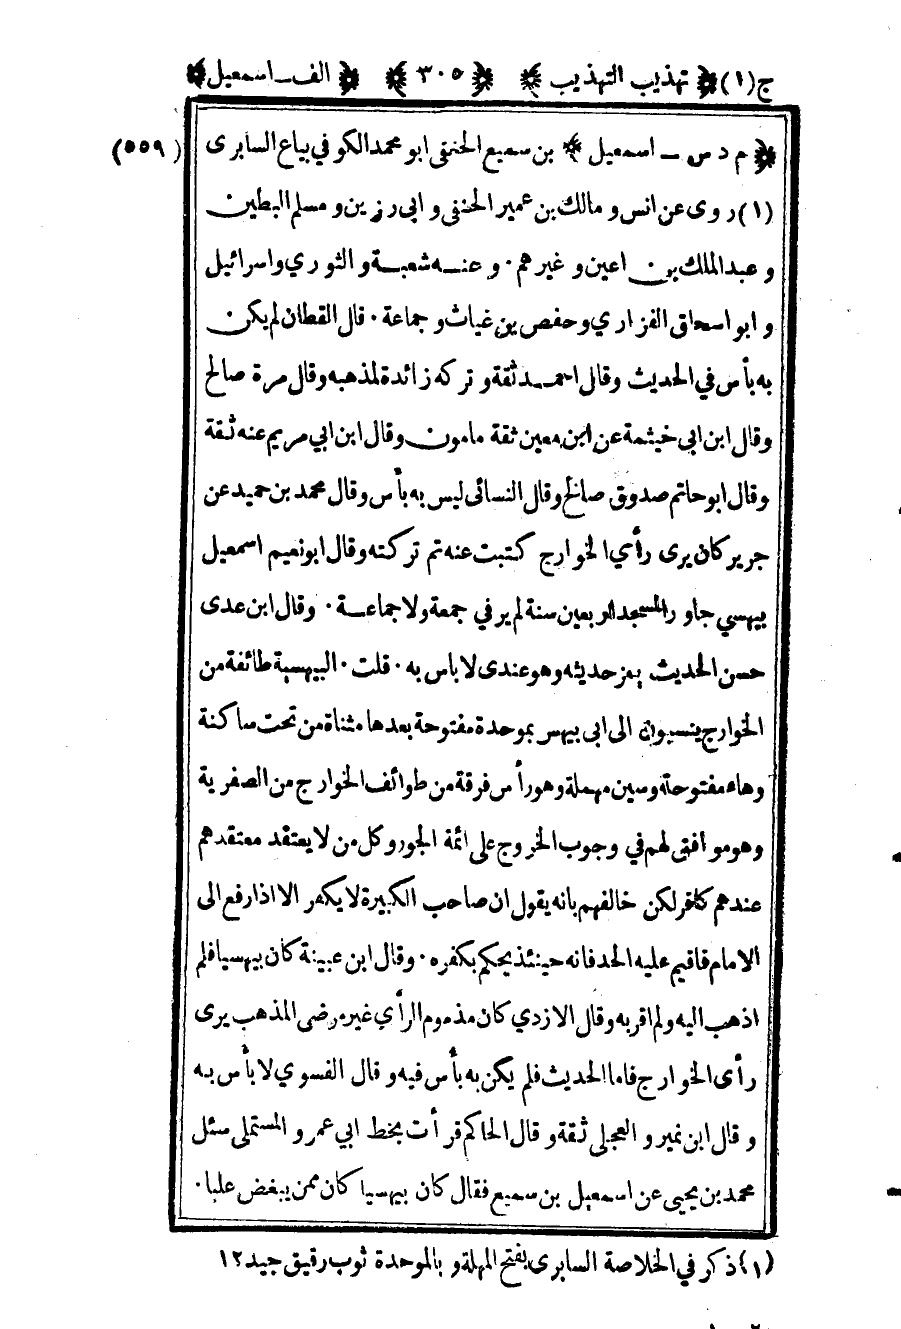 ج(١) ﴿تهذيب التهذيب﴾ ﴿٣٠٥﴾ ﴿الف ـ اسمعيل﴾
(٥٥٩) ﴿م د س ـ اسمعيل﴾ بن سميع الحنفى ابو محمد الكوفي بياع السابرى
(١) روى عن انس و مالك بن عمير الحنفى و ابى رزين و مسلم البطين
و عبد الملك بن اعين و غيرهم ۰ و عنه شعبة و الثوري و اسرائيل
و ابو اسحاق الفزاري و حفص بن غياث و جماعة ۰ قال القطان لم يكن
به بأس في الحديث وقال احمد ثقة و تركه زائدة لمذهبه وقال مرة صالح
وقال ابن ابى خيثمة عن ابن معين ثقة مامون وقال ابن ابي مريم عنه ثقة
وقال ابو حاتم صدوق صالح وقال النسائى ليس به بأس وقال محمد بن حميد عن
جرير كان يرى رأي الخوارج كتبت عنه ثم تركته وقال ابو نعيم اسمعيل
بيهسي جاور المسجد اربعين سنة لم ير في جمعة ولا جماعة ۰ وقال ابن عدى
حسن الحديث يعز حديثه وهو عندى لا باس به ۰ قلت ۰ البيهسية طائفة من
الخوارج ينسبون الى ابى بيهس بموحدة مفتوحة بعدها مثناة من تحت ساكنة
وهاء مفتوحة وسين مهملة وهو رأس فرقة من طوائف الخوارج من الصفرية
وهو موافق لهم في وجوب الخروج على ائمة الجور وكل من لا يعتقد معتقدهم
عندهم كافر لكن خالفهم بانه يقول ان صاحب الكبيرة لا يكفر الا اذا رفع الى
الامام فاقيم عليه الحد فانه حينئذ يحكم بكفره ۰ وقال ابن عيينة كان بيهسيا فلم
اذهب اليه ولم اقربه وقال الازدي كان مذموم الرأي غير مرضى المذهب يرى
رأى الخوارج فاما الحديث فلم يكن به بأس فيه و قال الفسوي لا بأس به
و قال ابن نمير و العجلى ثقة و قال الحاكم قرأت بخط ابي عمرو المستملى سئل
محمد بن يحيى عن اسمعيل بن سميع فقال كان بيهسيا كان ممن يبغض عليا ۰
(١) ذكر في الخلاصة السابرى بفتح المهملة و بالموحدة ثوب رقيق جيد ١٢